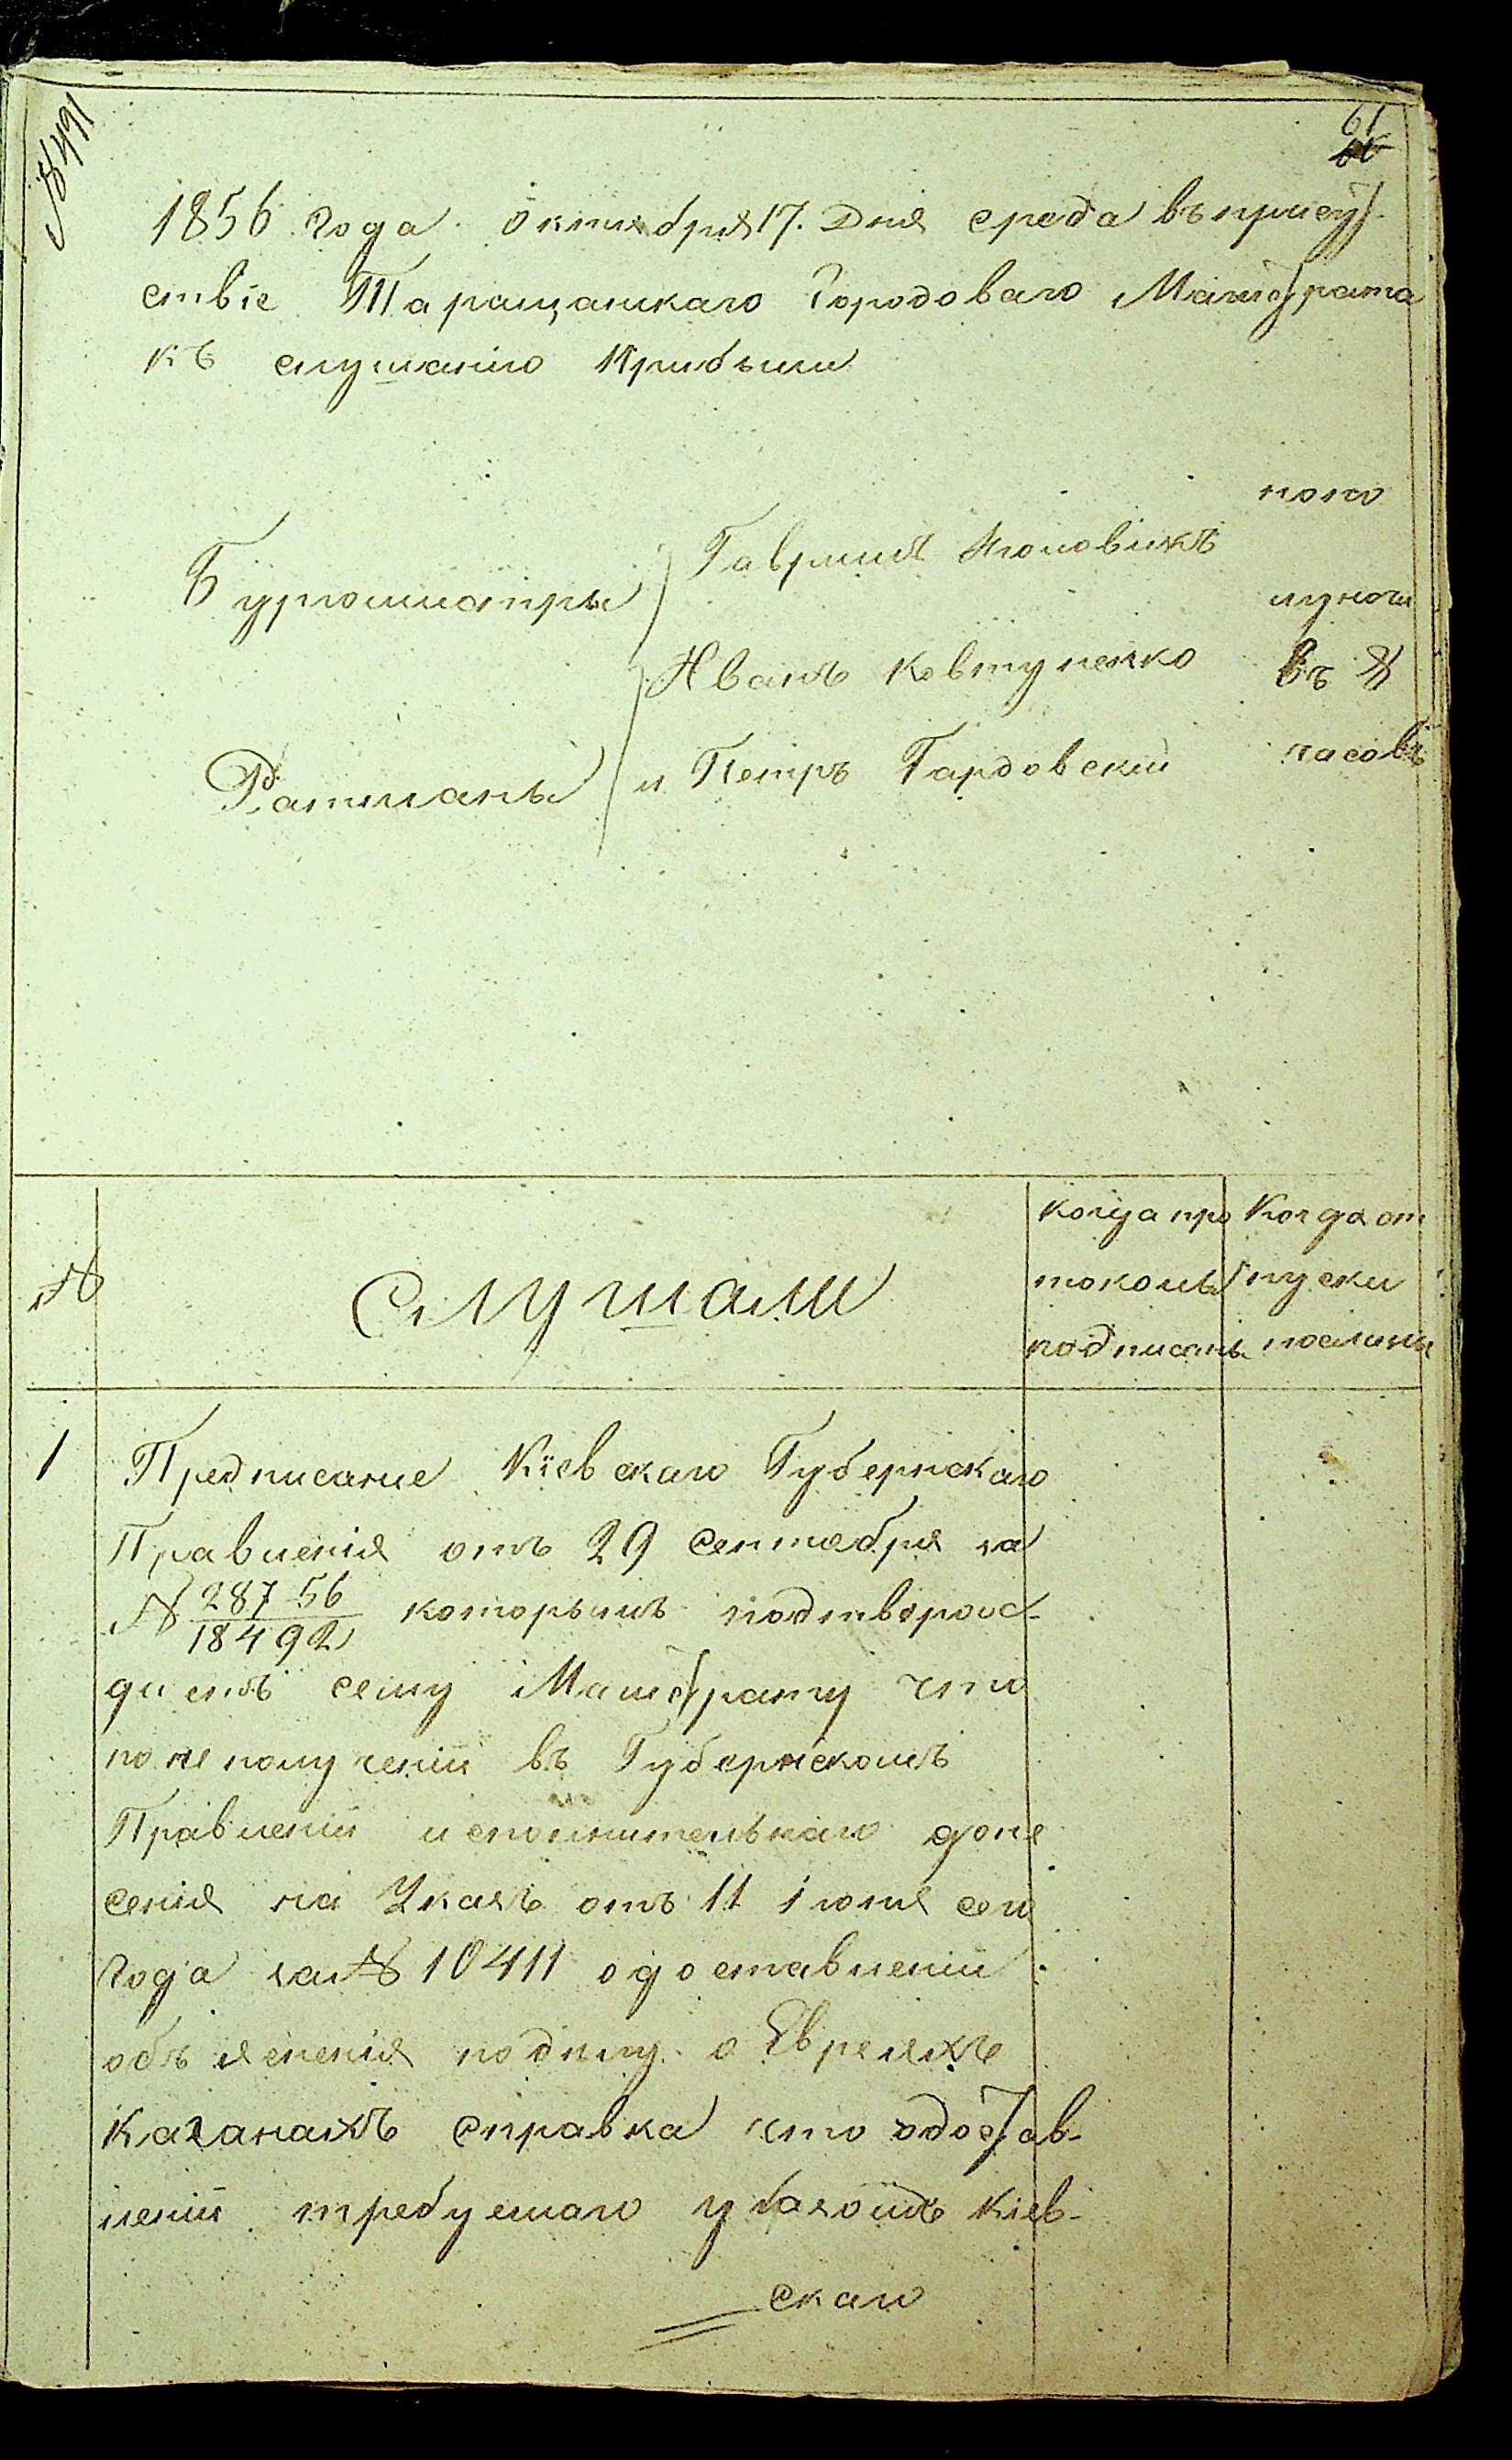 № 491
61
1856 года октября 17. Дня среда въ присут
ствіе Таращанскаго Городоваго Магистрата
къ слушанію Прибыли
Бургомистры
Гаврилъ
Иванъ Ковтуненко
Ратманы и Петръ Гардовскій
пополуночи
въ
часовъ
№
Слушали
когда про
токолы
подписаны
Когда от
пуски
посланы
1
Предписание Кіевскаго Губернскаго
Правленія отъ 29 Сентября за
№ 28756/18492 которымъ подтверож-
даетъ сему Магистрату что
по неполученіи въ Губернскомъ
Правленіи исполнительнаго доне
сенія на Указъ отъ 11 іюня сего
года за № 10411 о доставленіи
объясненія по делу о Евреяхъ
Каганахъ справка что о достав-
леніи требуемаго Указомъ Кіев-
скаго